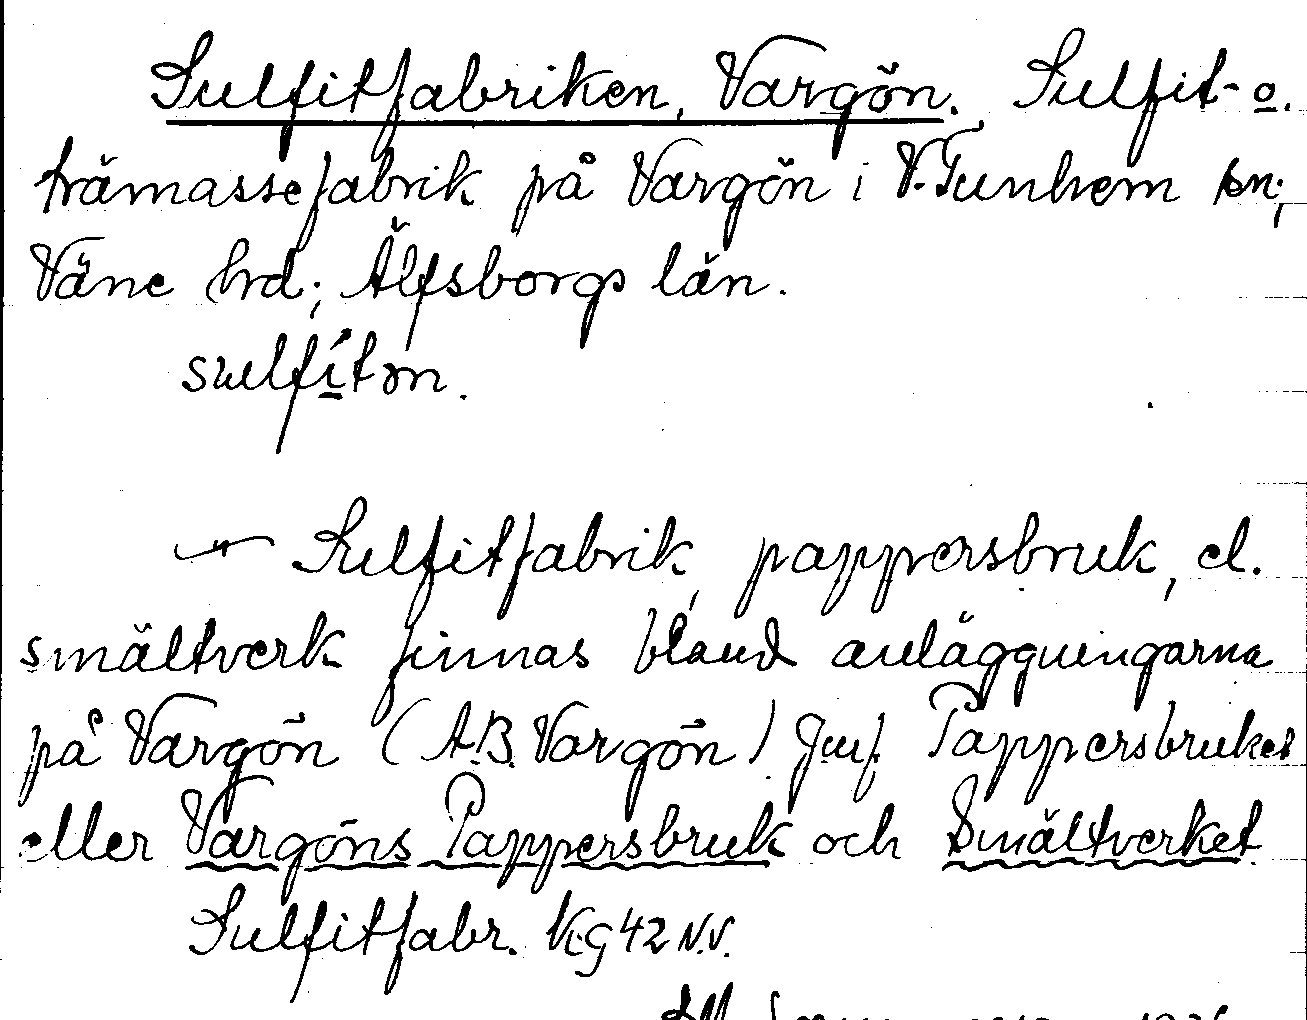 Sulfitfabriken, Vargön. Sulfit- o.
trämassefabrik på Vargön i V. Tunhem sn;
Väne hrd; Älfsborgs län.
sulfitən.
—„— Sulfitfabrik, pappersbruk, el.
smältverk finnas bland anläggningarna
på Vargön (A.B. Vargön) Jmf. Pappersbruket
eller Vargöns Pappersbruk och Smältverket
Sulfitfabr. KG 42 N.V.